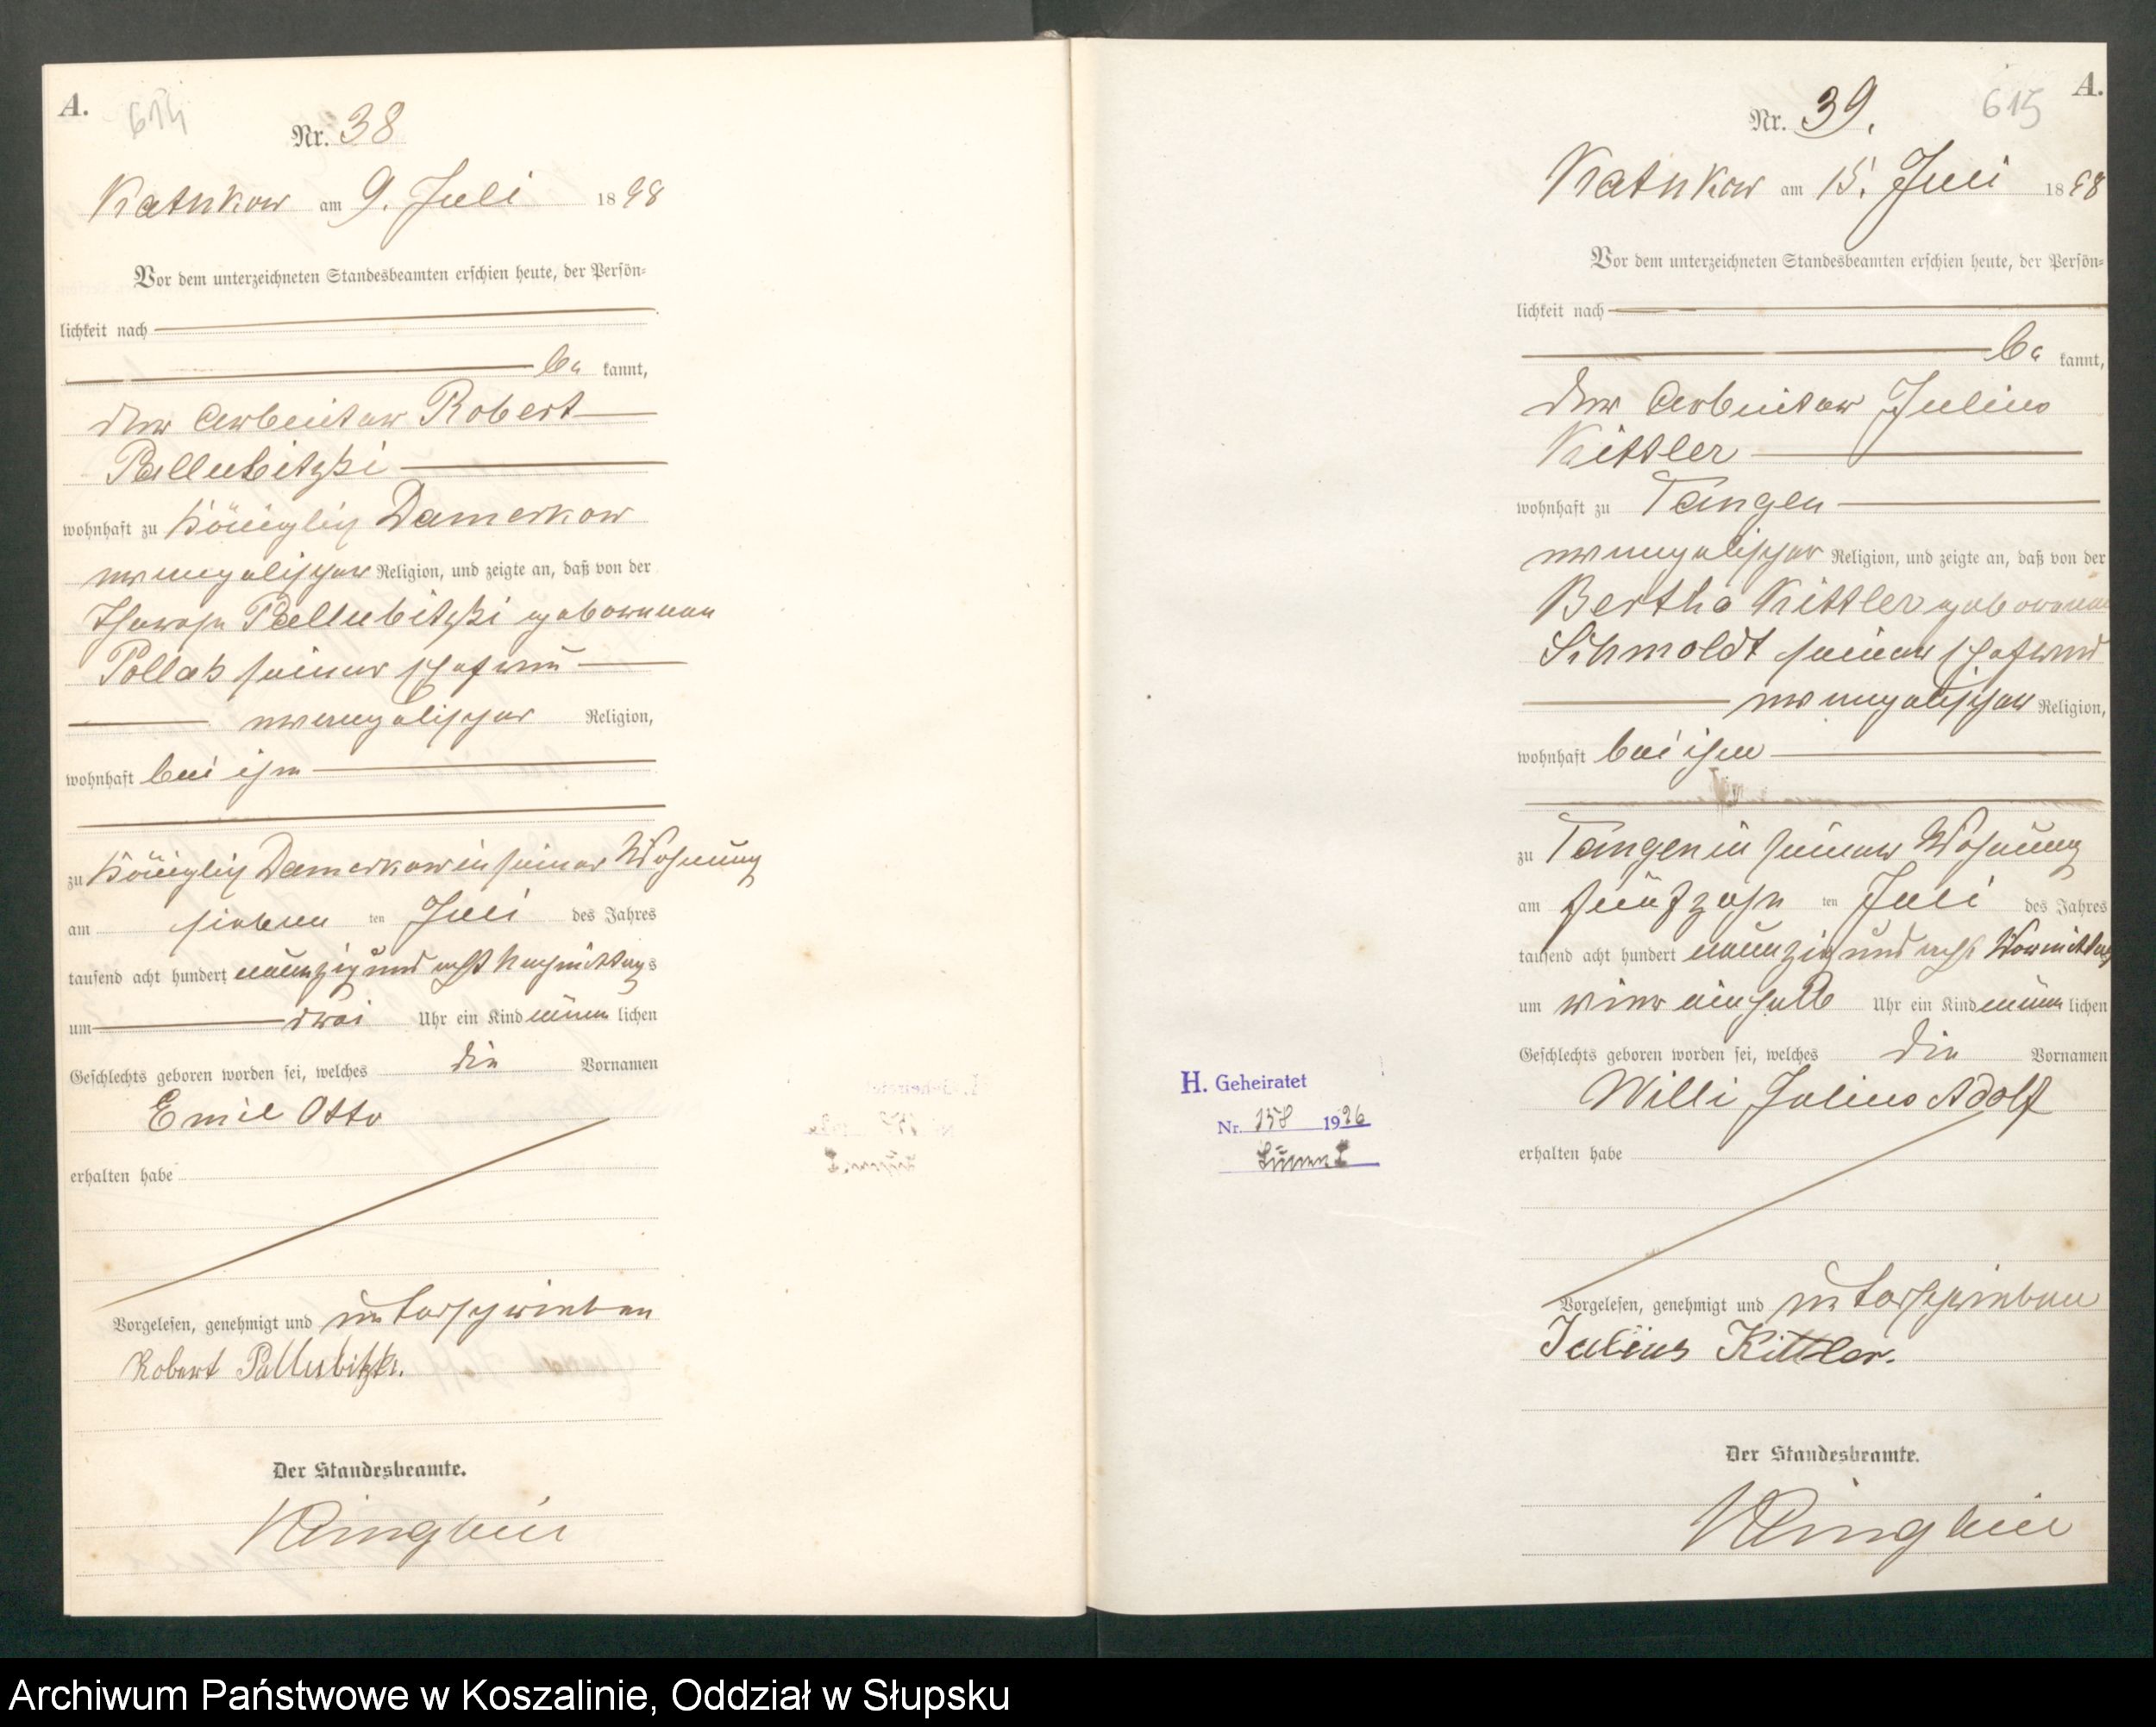 A.
614
Nr. 38
Katzkow am 9. Juli 1898
Vor dem unterzeichneten Standesbeamten erschien heute, der Persön-
lichkeit nach
be kannt,
der Arbeiter Robert
Pallubitzki
wohnhaft zu Königlich Damerkow
evangelischer Religion, und zeigte an, daß von der
Therese Pallubitzki geborenen
Pollak seiner Ehefrau
evangelischer Religion,
wohnhaft bei ihm
zu Königlich Damerkow in seiner Wohnung
am sieben ten Juli des Jahres
tausend acht hundert neunzig und acht Nachmittags
um drei Uhr ein Kind männ lichen
Geschlechts geboren worden sei, welches die Vornamen
Emil Otto
erhalten habe
Vorgelesen, genehmigt und unterschrieben
Robert Pallubitzki.
Der Standesbeamte.
A.
615
Nr. 39.
Katzkow am 15. Juli 1898
Vor dem unterzeichneten Standesbeamten erschien heute, der Persön-
lichkeit nach
be kannt,
der Arbeiter Julius
Kittler
wohnhaft zu Tangen
evangelischer Religion, und zeigte an, daß von der
Bertha Kittler geborenen
Schmoldt seiner Ehefrau
evangelischer Religion,
wohnhaft bei ihm
zu Tangen in seiner Wohnung
am fünfzehn ten Juli des Jahres
tausend acht hundert neunzig und acht Vormittags
um vier einhalb Uhr ein Kind männ lichen
Geschlechts geboren worden sei, welches die Vornamen
Willi Julius Adolf
erhalten habe
Vorgelesen, genehmigt und unterschrieben
Julius Kittler.
Der Standesbeamte.
H. Geheiratet
Nr. 158 1926
Lünen I
Archiwum Państwowe w Koszalinie, Oddział w Słupsku